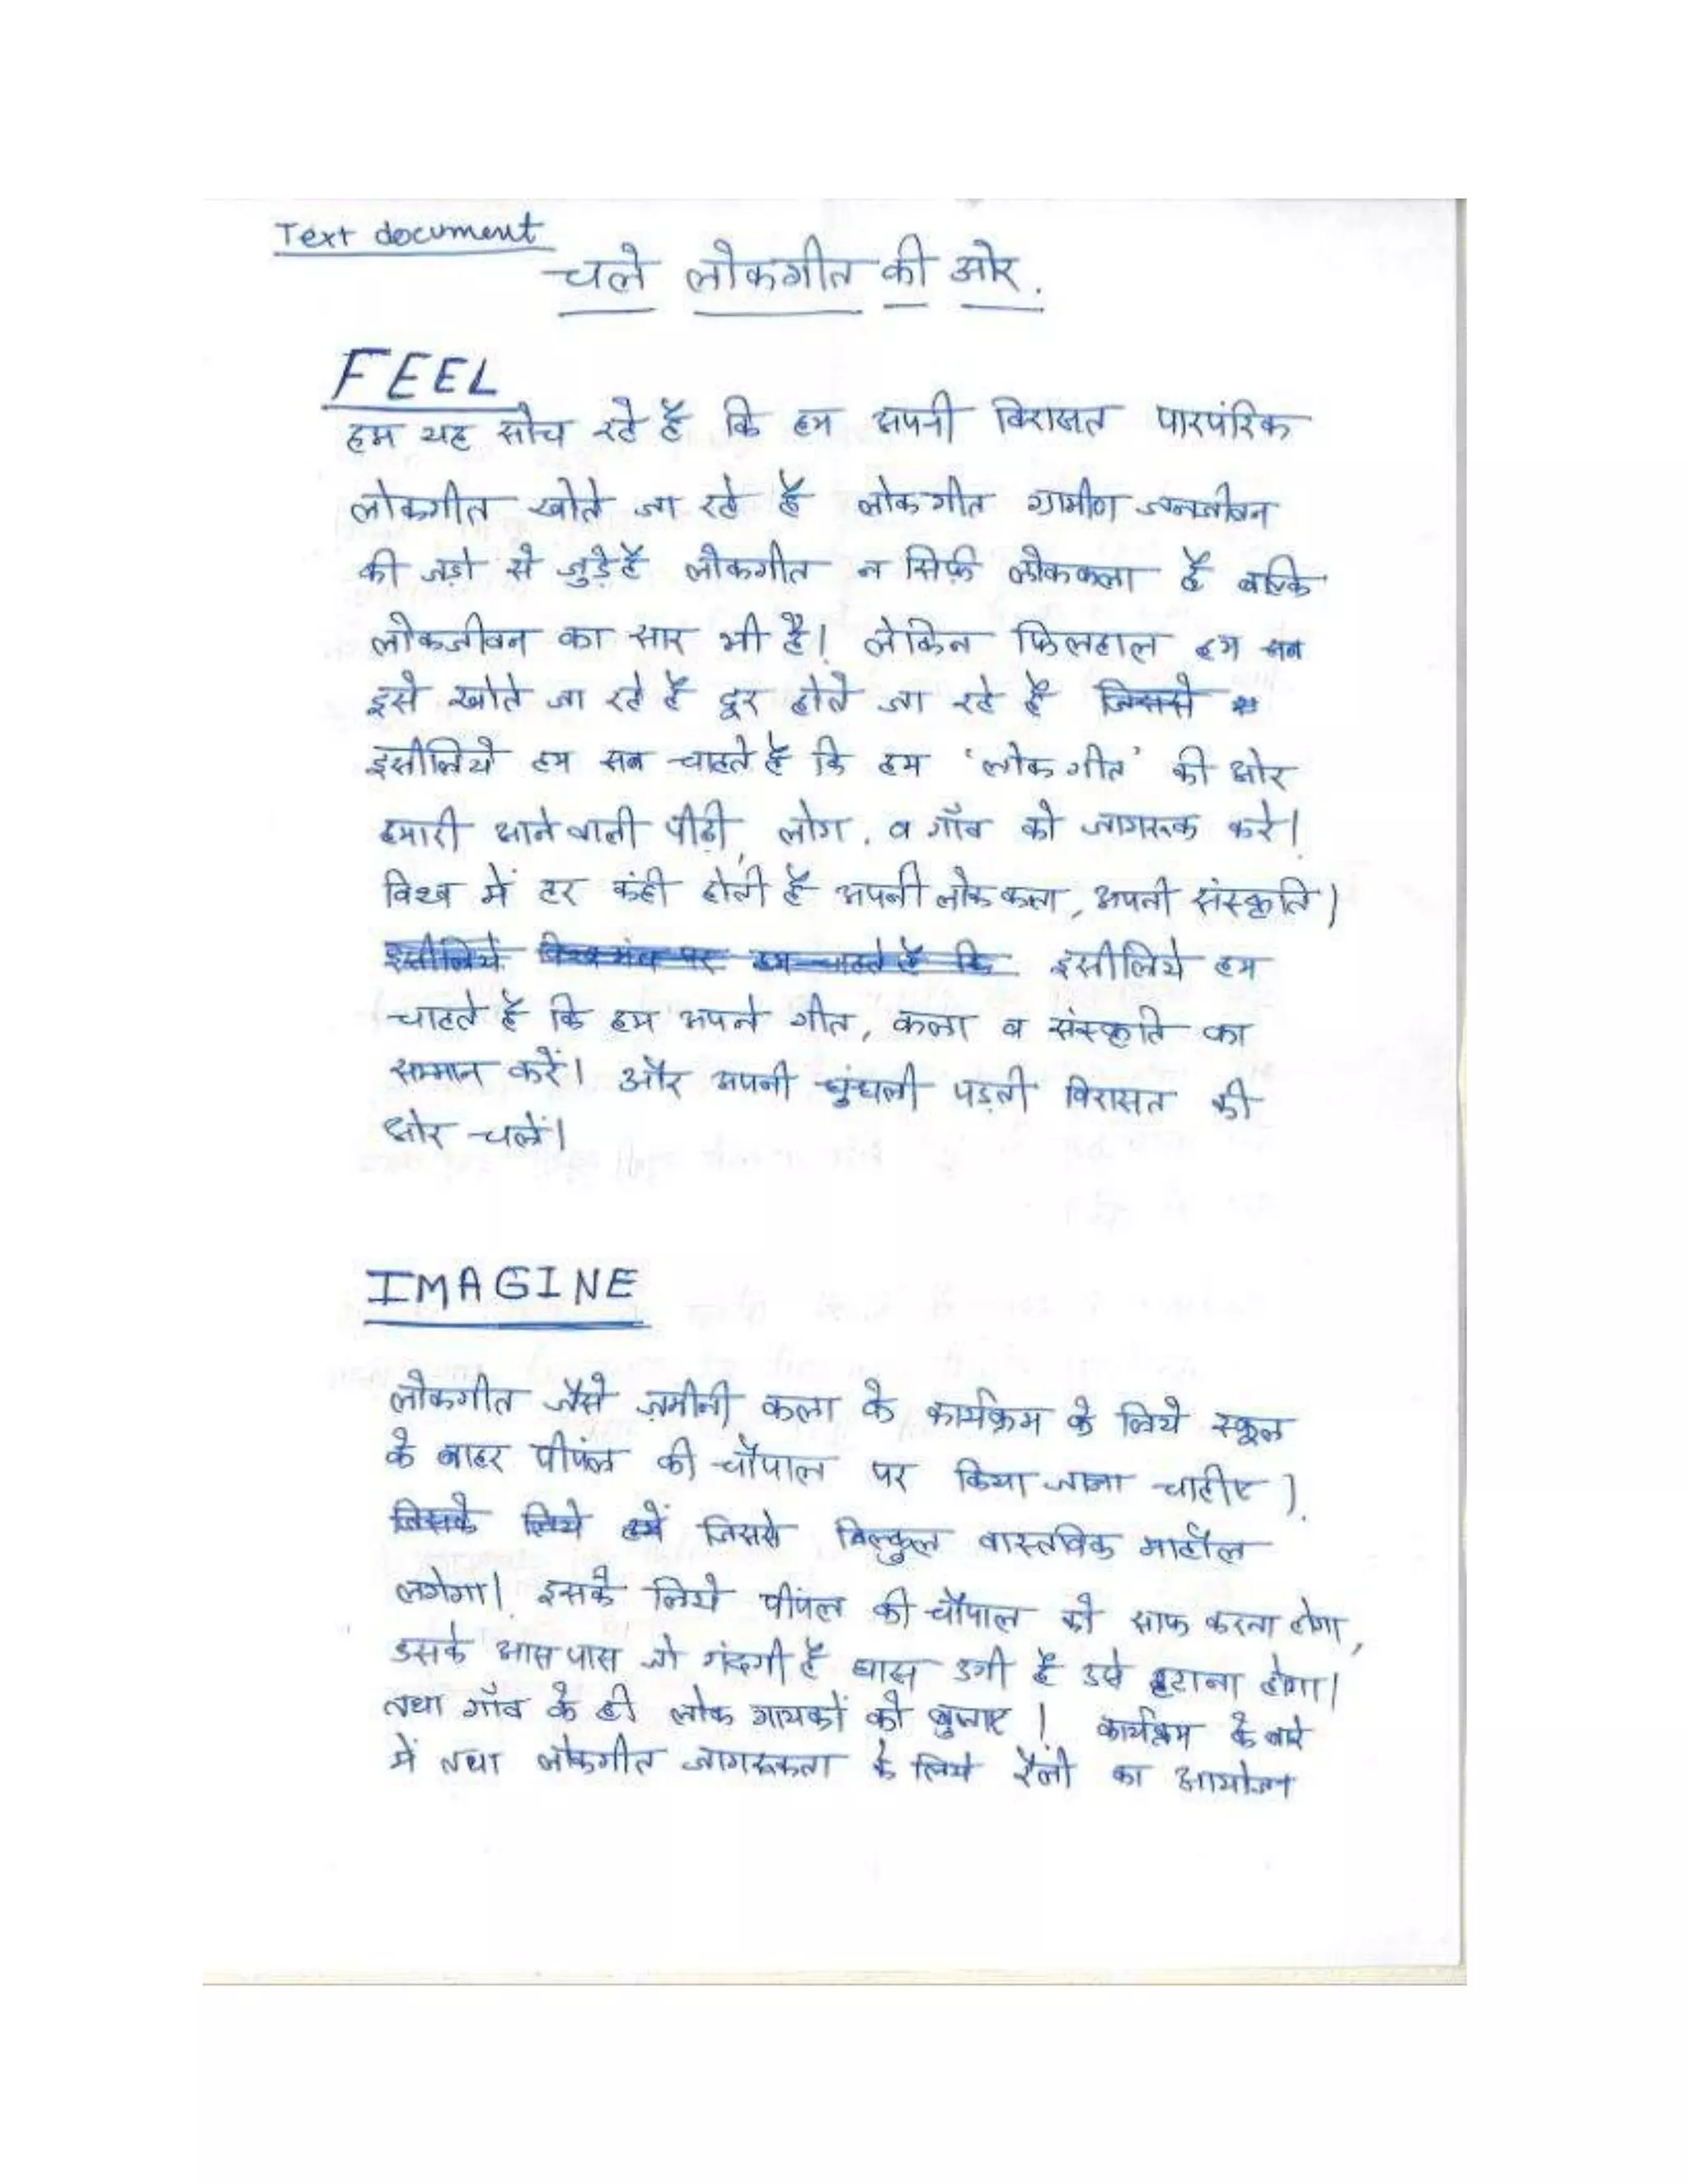 Text document
चले लोकगीत की ओर.
FEEL
हम यह सोच रहे हैं कि हम अपनी विरासत पारपंरिक
लोकगीत खोते जा रहे हैं लोकगीत ग्रामीण जनजीवन
की जड़ो से जुड़े हैं लोकगीत न सिर्फ़ लोककला है बल्कि
लोकजीवन का सार भी है। लेकिन फिलहाल हम सब
इसे खोते जा रहे हैं दूर होते जा रहे हैं जिससे
इसीलिये हम सब चाहते हैं कि हम 'लोकगीत' की ओर
हमारी आनेवाली पीढी, लोग, व गाँव को जागरूक करे।
विश्व में हर कंही होती है अपनी लोककला, अपनी संस्कृति।
इसीलिये विश्व मंच पर हम चाहते हैं कि इसीलिये हम
चाहते हैं कि हम अपने गीत, कला व संस्कृति का
सम्मान करें। और अपनी धुंधली पड़ती विरासत की
ओर चलें।
IMAGINE
लोकगीत जैसे ज़मीनी कला के कार्यक्रम के लिये स्कूल
के बाहर पीपंल की चौपाल पर किया जाना चाहीए।
जिसके लिये हमें जिससे बिल्कुल वास्तविक माहौल
लगेगा। इसके लिये पीपंल की चौपाल को साफ करना होगा,
उसके आसपास जो गंदगी है घास उगी है उसे हटाना होगा।
तथा गाँव के ही लोक गायकों को बुलाए। कार्यक्रम के बारे
में तथा लोकगीत जागरूकता के लिये रैली का आयोजन